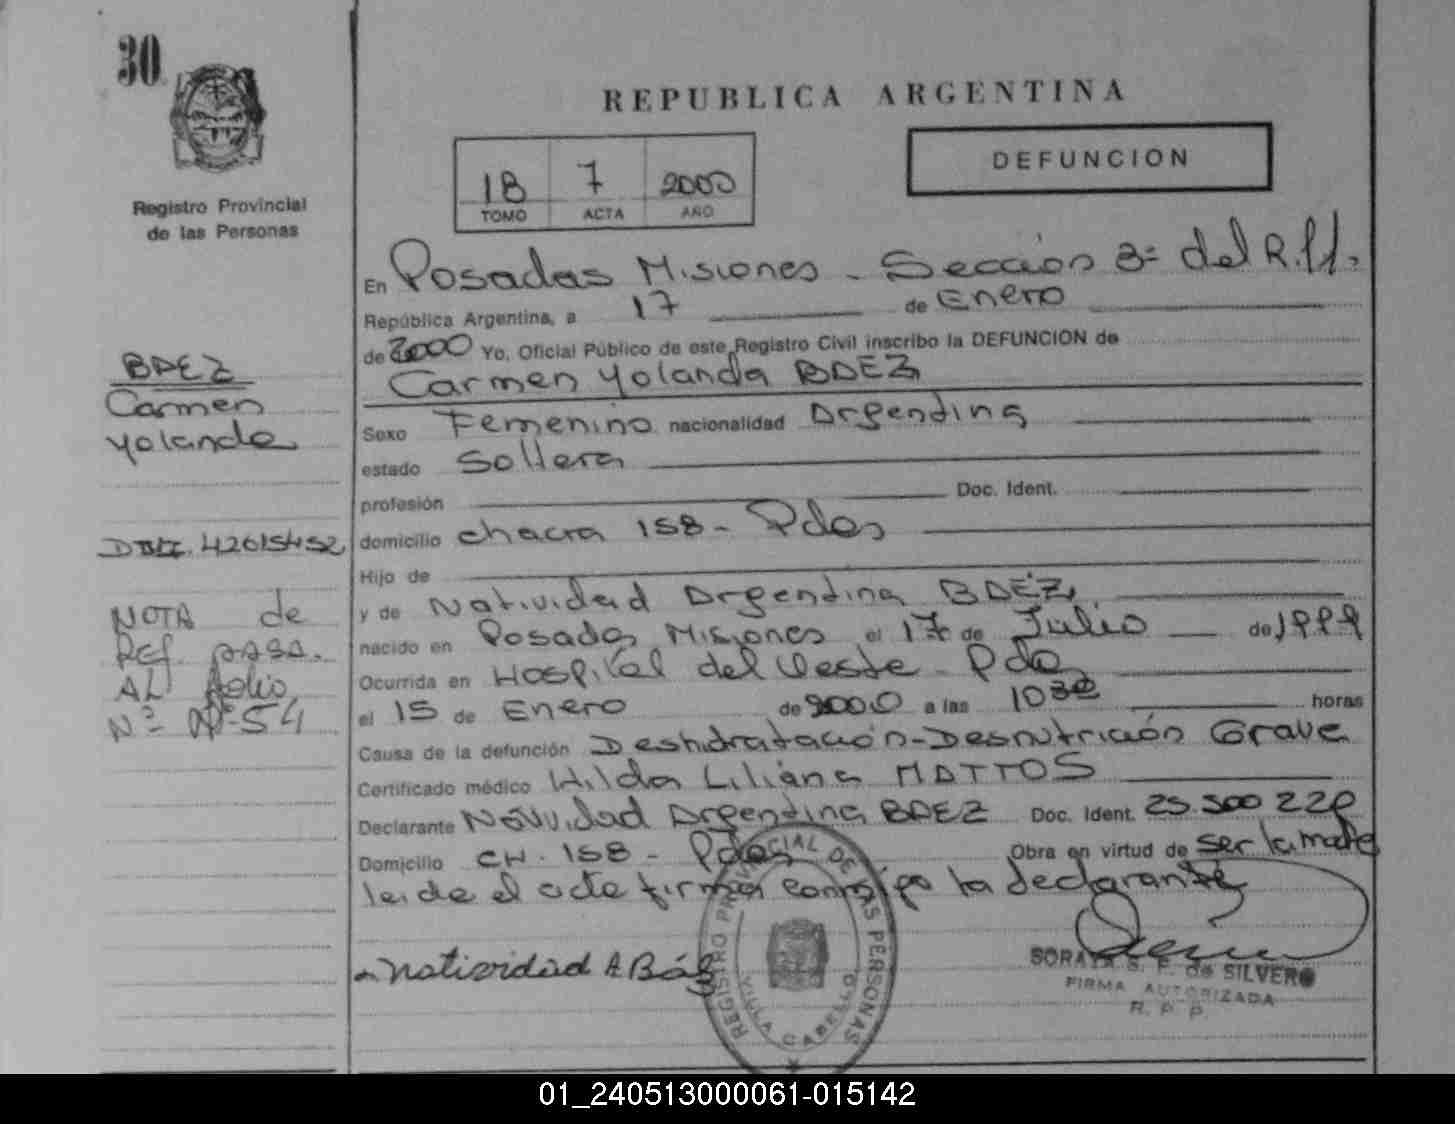 30
REPUBLICA ARGENTINA
DEFUNCION
18 7 2000
TOMO ACTA AÑO
Registro Provincial
de las Personas
En Posadas Misiones - Sección 3ª del R.
República Argentina, a 17 de Enero
de 2000 Yo, Oficial Público de este Registro Civil inscribo la DEFUNCION de
Carmen Yolanda BAEZ
BAEZ
Carmen
Yolanda
Sexo Femenino nacionalidad Argentina
estado Soltera
profesión Doc. Ident.
DNI. 42615452
domicilio chacra 158 - Pdas
Hijo de
y de Natividad Argentina BAEZ
NOTA de
Ref. pasa.
AL folio
Nº 54
nacido en Posadas Misiones el 17 de Julio de 1999
Ocurrida en Hospital del Oeste - Pdas
el 15 de Enero de 2000 a las 10 30 horas
Causa de la defunción Deshidratación - Desnutrición Grave
Certificado médico Hilda Liliana MATTOS
Declarante Natividad Argentina BAEZ Doc. Ident. 25.500 220
Domicilio CH. 158 - Pdas Obra en virtud de ser la madre
leida el acta firma conmigo la declarante
Natividad A Báez
REGISTRO PROVINCIAL DE LAS PERSONAS
VILLA CABELLO
SORAYA S. F. de SILVERO
FIRMA AUTORIZADA
R. P. P.
01_240513000061-015142